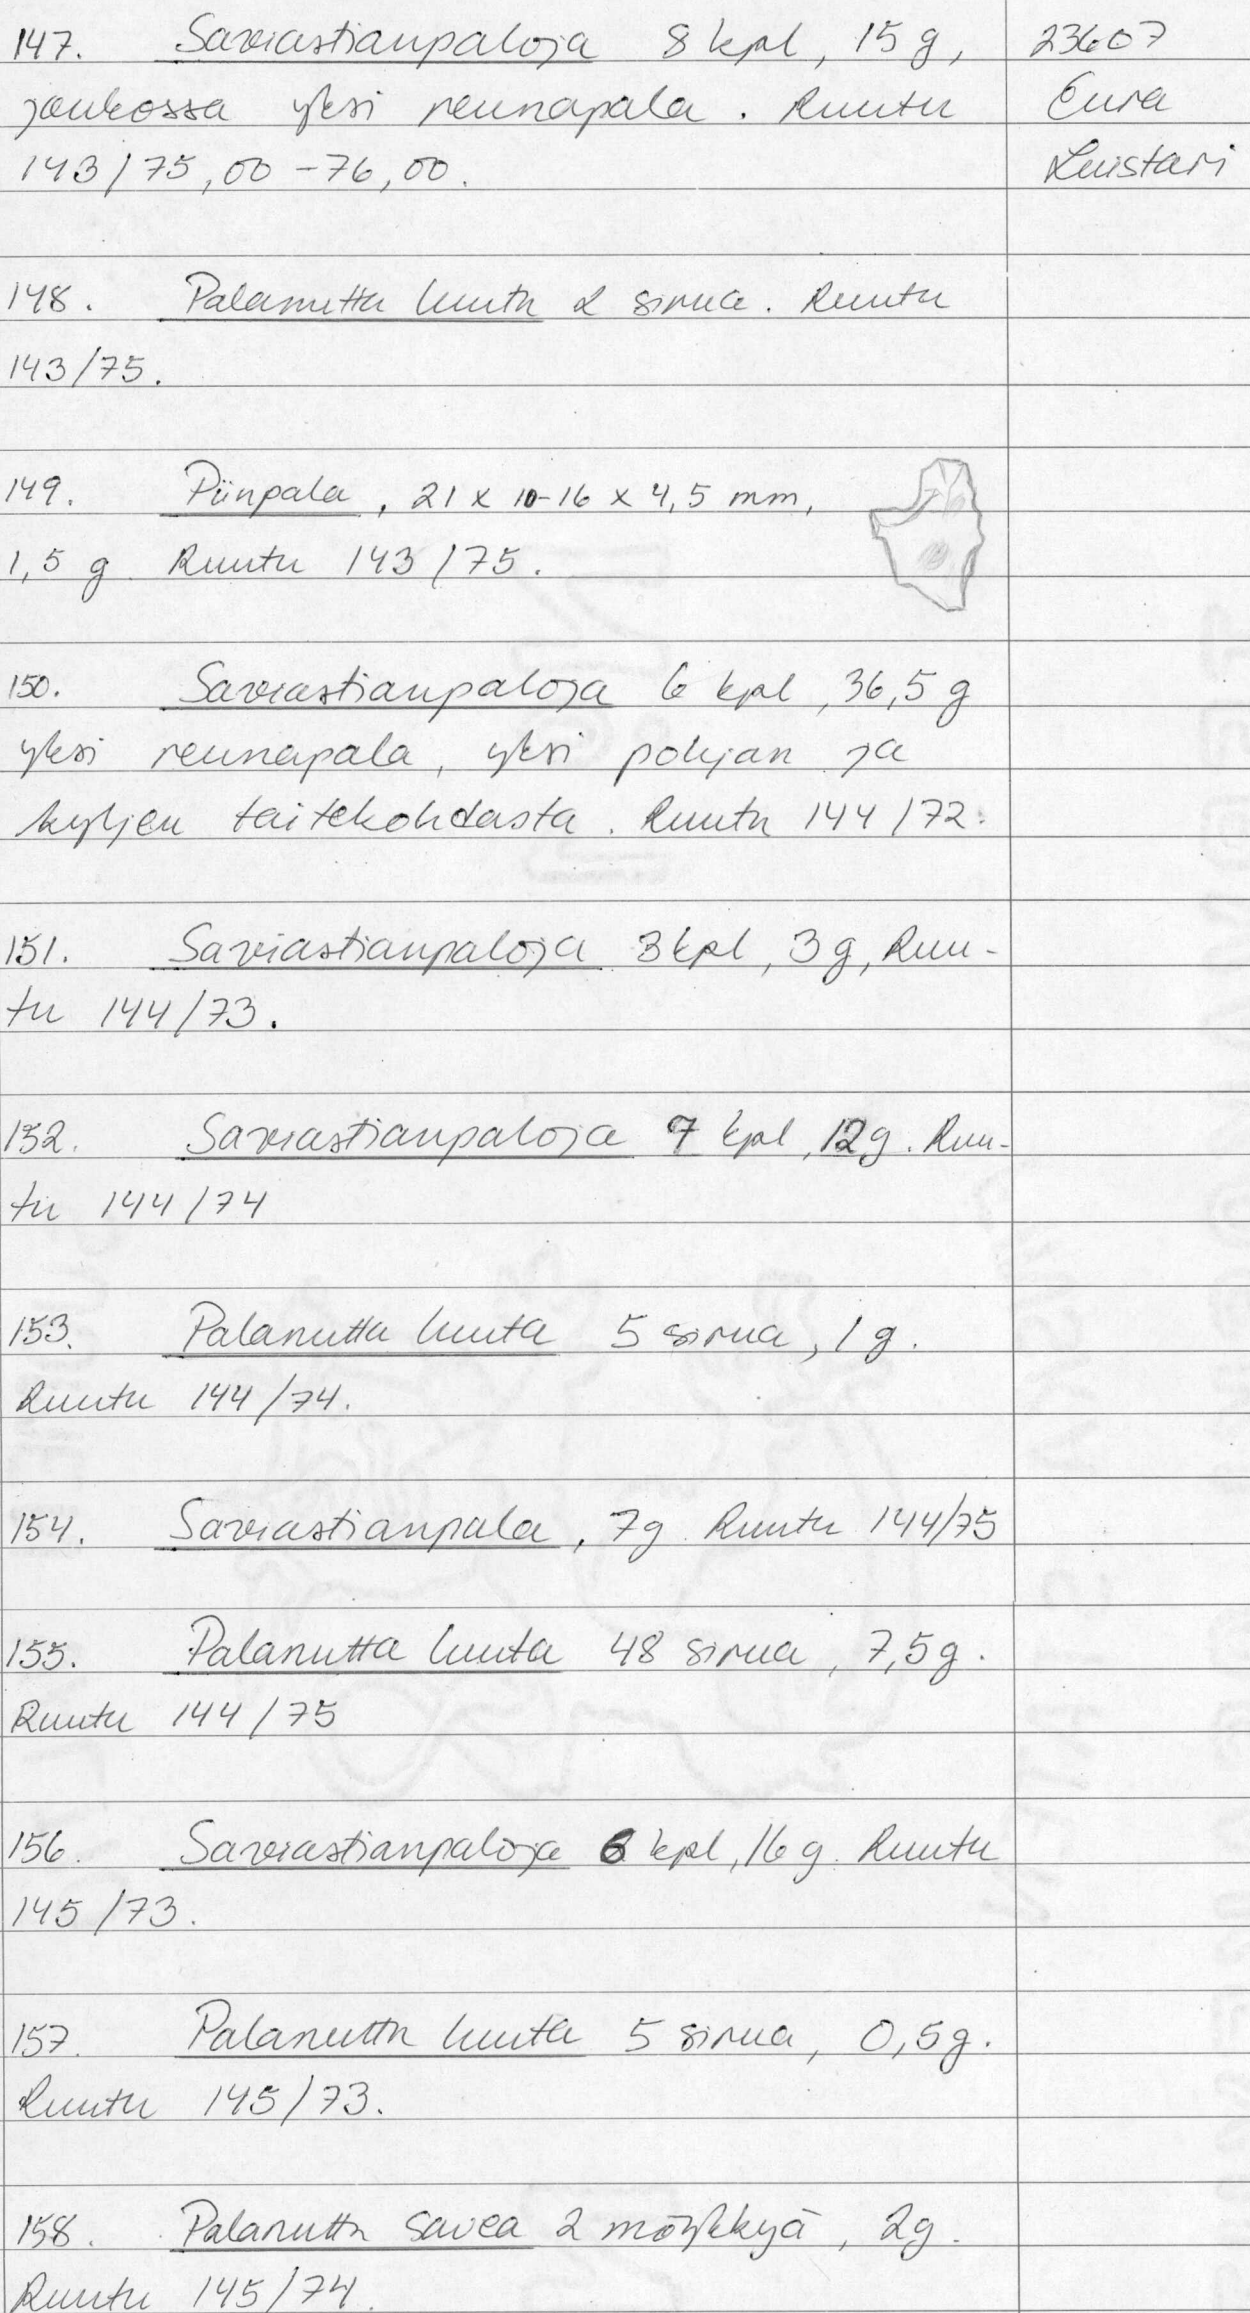 147. Saviastianpaloja 8 kpl, 15 g,
joukossa yksi reunapala. Ruutu
143/75,00-76,00.
23607
Eura
Luistari
148. Palanutta luuta 2 sirua. Ruutu
143/75.
149. Piinpala, 21 x 10-16 x 4,5 mm,
1,5 g. Ruutu 143/75.
150. Saviastianpaloja 6 kpl, 36,5 g
yksi reunapala, yksi pohjan ja
kyljen taitekohdasta. Ruutu 144/72.
151. Saviastianpaloja 3 kpl, 3 g, Ruu-
tu 144/73.
152. Saviastianpaloja 7 kpl, 12 g. Ruu-
tu 144/74
153. Palanutta luuta 5 sirua, 1 g.
Ruutu 144/74.
154. Saviastianpala, 7 g. Ruutu 144/75
155. Palanutta luuta 48 sirua, 7,5 g.
Ruutu 144/75
156. Saviastianpaloja 6 kpl, 16 g. Ruutu
145/73.
157. Palanutta luuta 5 sirua, 0,5 g.
Ruutu 145/73.
158. Palanutta savea 2 möykkyä, 2 g.
Ruutu 145/74.